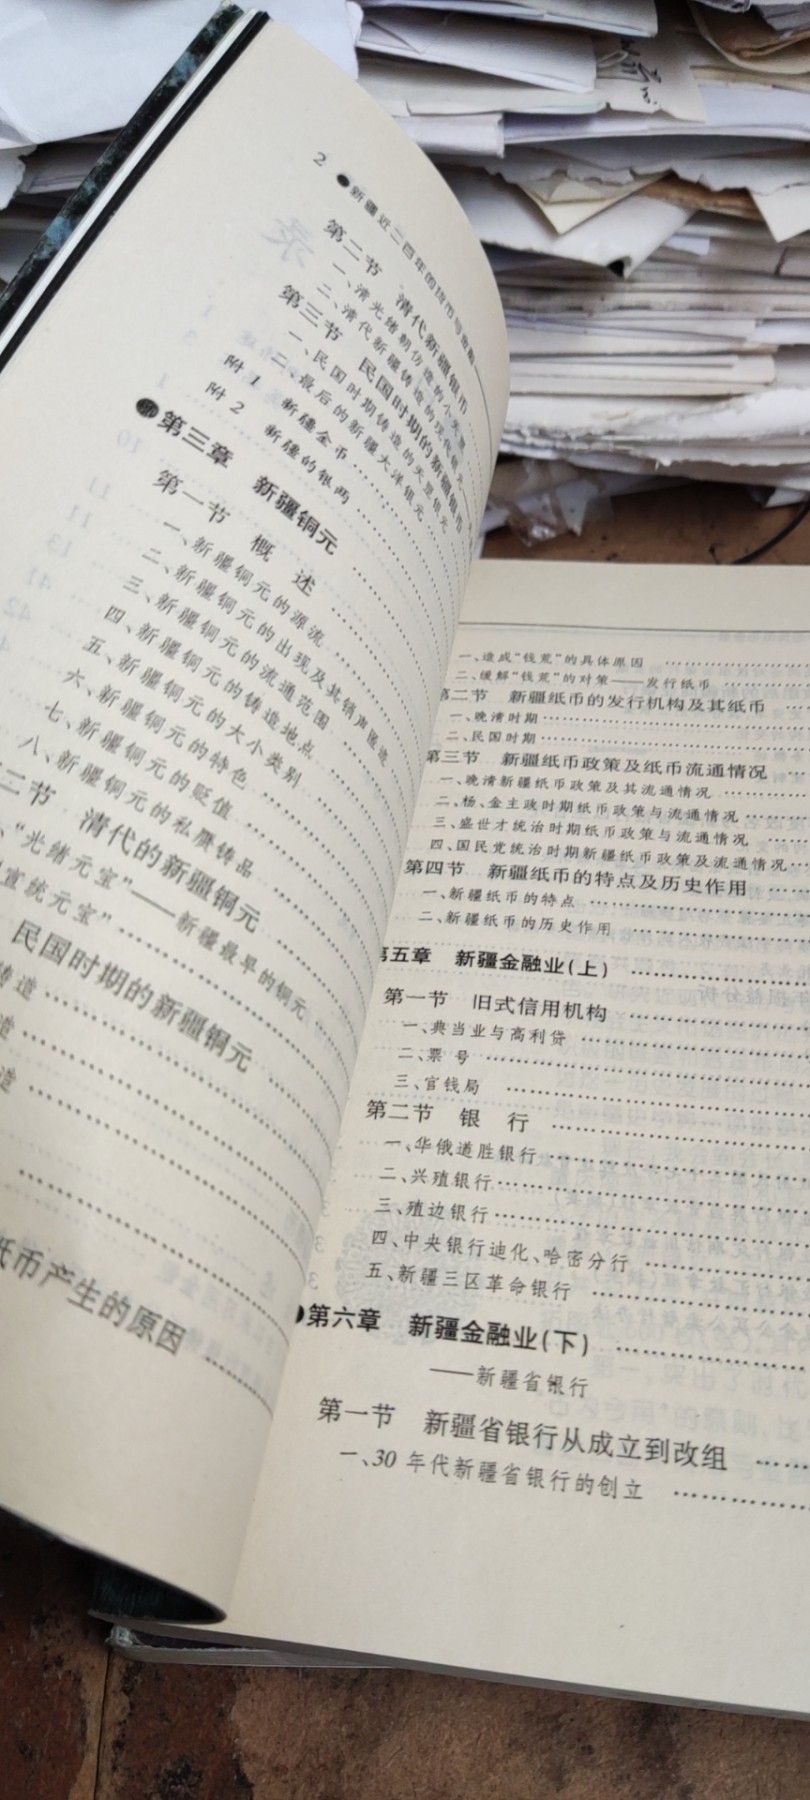 2 ●新疆近二百年的货币与金融
第二节 清代新疆银币
一、清光绪朝仿造的小天罡
二、清代新疆铸造的现代银元
第三节 民国时期的新疆银币
一、民国时期铸造的天罡银元
二、最后的新疆大洋银元
附1 新疆金币
附2 新疆的银两
第三章 新疆铜元
第一节 概述
一、新疆铜元的源流
二、新疆铜元的出现及其销声匿迹
三、新疆铜元的流通范围
四、新疆铜元的铸造地点
五、新疆铜元的大小类别
六、新疆铜元的特色
七、新疆铜元的贬值
八、新疆铜元的私赝铸品
二节 清代的新疆铜元
、“光绪元宝”——新疆最早的铜元
宣统元宝”
民国时期的新疆铜元
铸造
造
造
纸币产生的原因
一、造成“钱荒”的具体原因
二、缓解“钱荒”的对策——发行纸币
第二节 新疆纸币的发行机构及其纸币
一、晚清时期
二、民国时期
第三节 新疆纸币政策及纸币流通情况
一、晚清新疆纸币政策及其流通情况
二、杨、金主政时期纸币政策与流通情况
三、盛世才统治时期纸币政策与流通情况
四、国民党统治时期新疆纸币政策及流通情况
第四节 新疆纸币的特点及历史作用
一、新疆纸币的特点
二、新疆纸币的历史作用
第五章 新疆金融业(上)
第一节 旧式信用机构
一、典当业与高利贷
二、票号
三、官钱局
第二节 银行
一、华俄道胜银行
二、兴殖银行
三、殖边银行
四、中央银行迪化、哈密分行
五、新疆三区革命银行
第六章 新疆金融业(下)
——新疆省银行
第一节 新疆省银行从成立到改组
一、30年代新疆省银行的创立